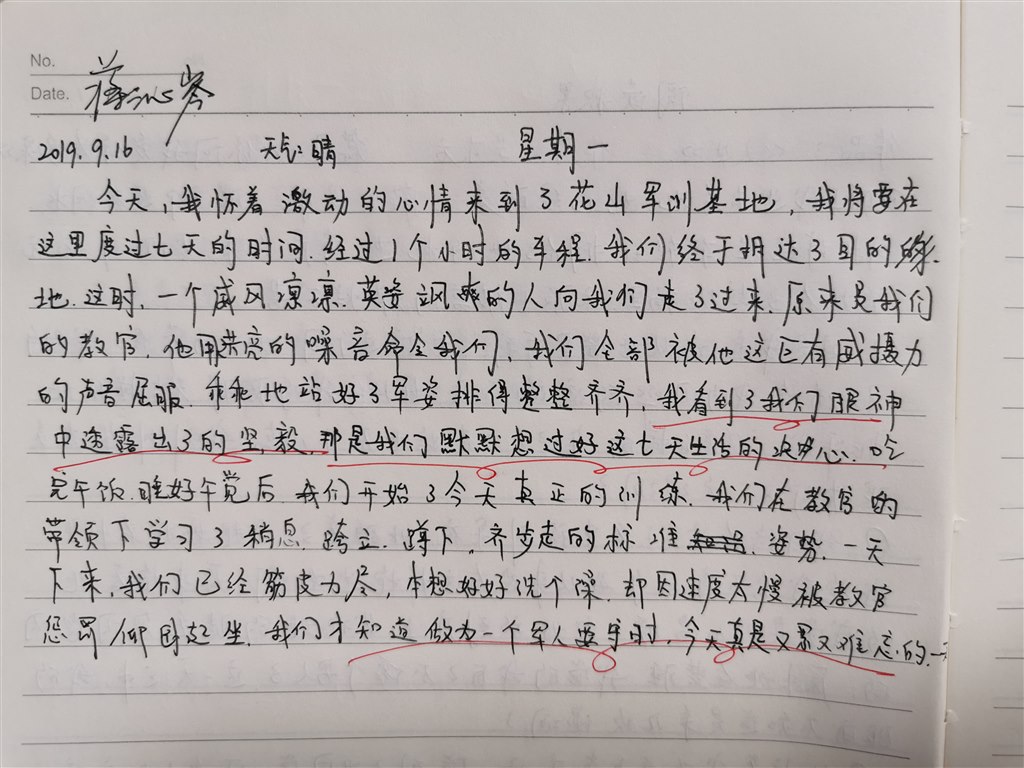 No.
Date. 蒋沁岑
2019.9.16 天气:晴 星期一
今天,我怀着激动的心情来到了花山军训基地,我将要在
这里度过七天的时间.经过1个小时的车程.我们终于抵达了目的
地.这时,一个威风凛凛.英姿飒爽的人向我们走了过来.原来是我们
的教官,他用洪亮的嗓音命令我们,我们全部被他这巨有威摄力
的声音屈服.乖乖地站好了军姿排得整整齐齐,我看到了我们眼神
中透露出了的坚毅,那是我们默默想过好这七天生活的决心.吃
完午饭.睡好午觉后.我们开始了今天真正的训练.我们在教官的
带领下学习了稍息.跨立.蹲下,齐步走的标准姿势,一天
下来,我们已经筋皮力尽,本想好好洗个澡.却因速度太慢被教官
惩罚仰卧起坐.我们才知道做为一个军人要守时,今天真是又累又难忘的一天